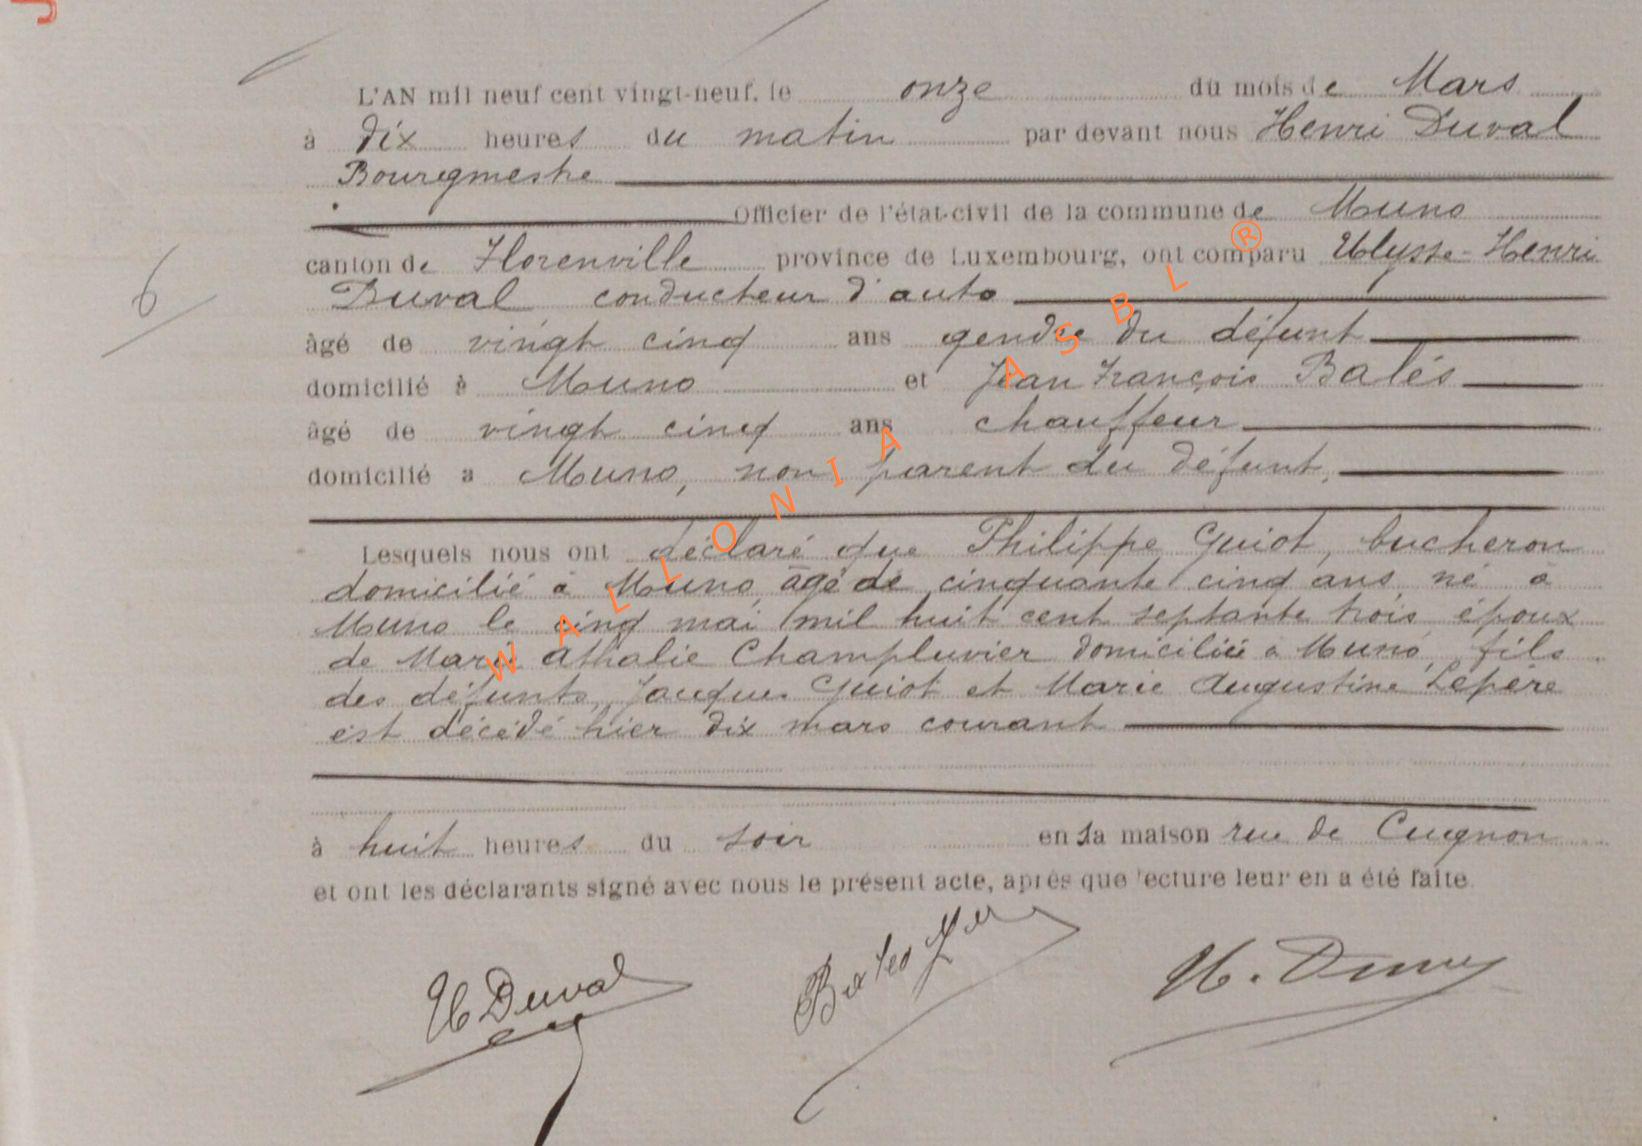 L'AN mil neuf cent vingt-neuf, le onze du mois de Mars
à dix heures du matin par devant nous Henri Duval
Bourgmestre
Officier de l'état-civil de la commune de Muno
canton de Florenville province de Luxembourg, ont comparu Ulysse-Henri
Duval conducteur d'auto
6
âgé de vingt cinq ans gendre du défunt
domicilié à Muno et Jean François Balés
âgé de vingt cinq ans chauffeur
domicilié à Muno, non parent du défunt,
Lesquels nous ont déclaré que Philippe Guiot, bucheron
domicilié à Muno, âgé de cinquante cinq ans, né à
Muno le cinq mai mil huit cent septante trois, époux
de Marie Athalie Champluvier domiciliée à Muno, fils
des défunts, Jacques Guiot et Marie Augustine Lepère
est décédé hier dix mars courant
à huit heures du soir en sa maison rue de Cugnon
et ont les déclarants signé avec nous le présent acte, après que lecture leur en a été faite.
H Duval
H. Duval
WALLONIA ASBL ®